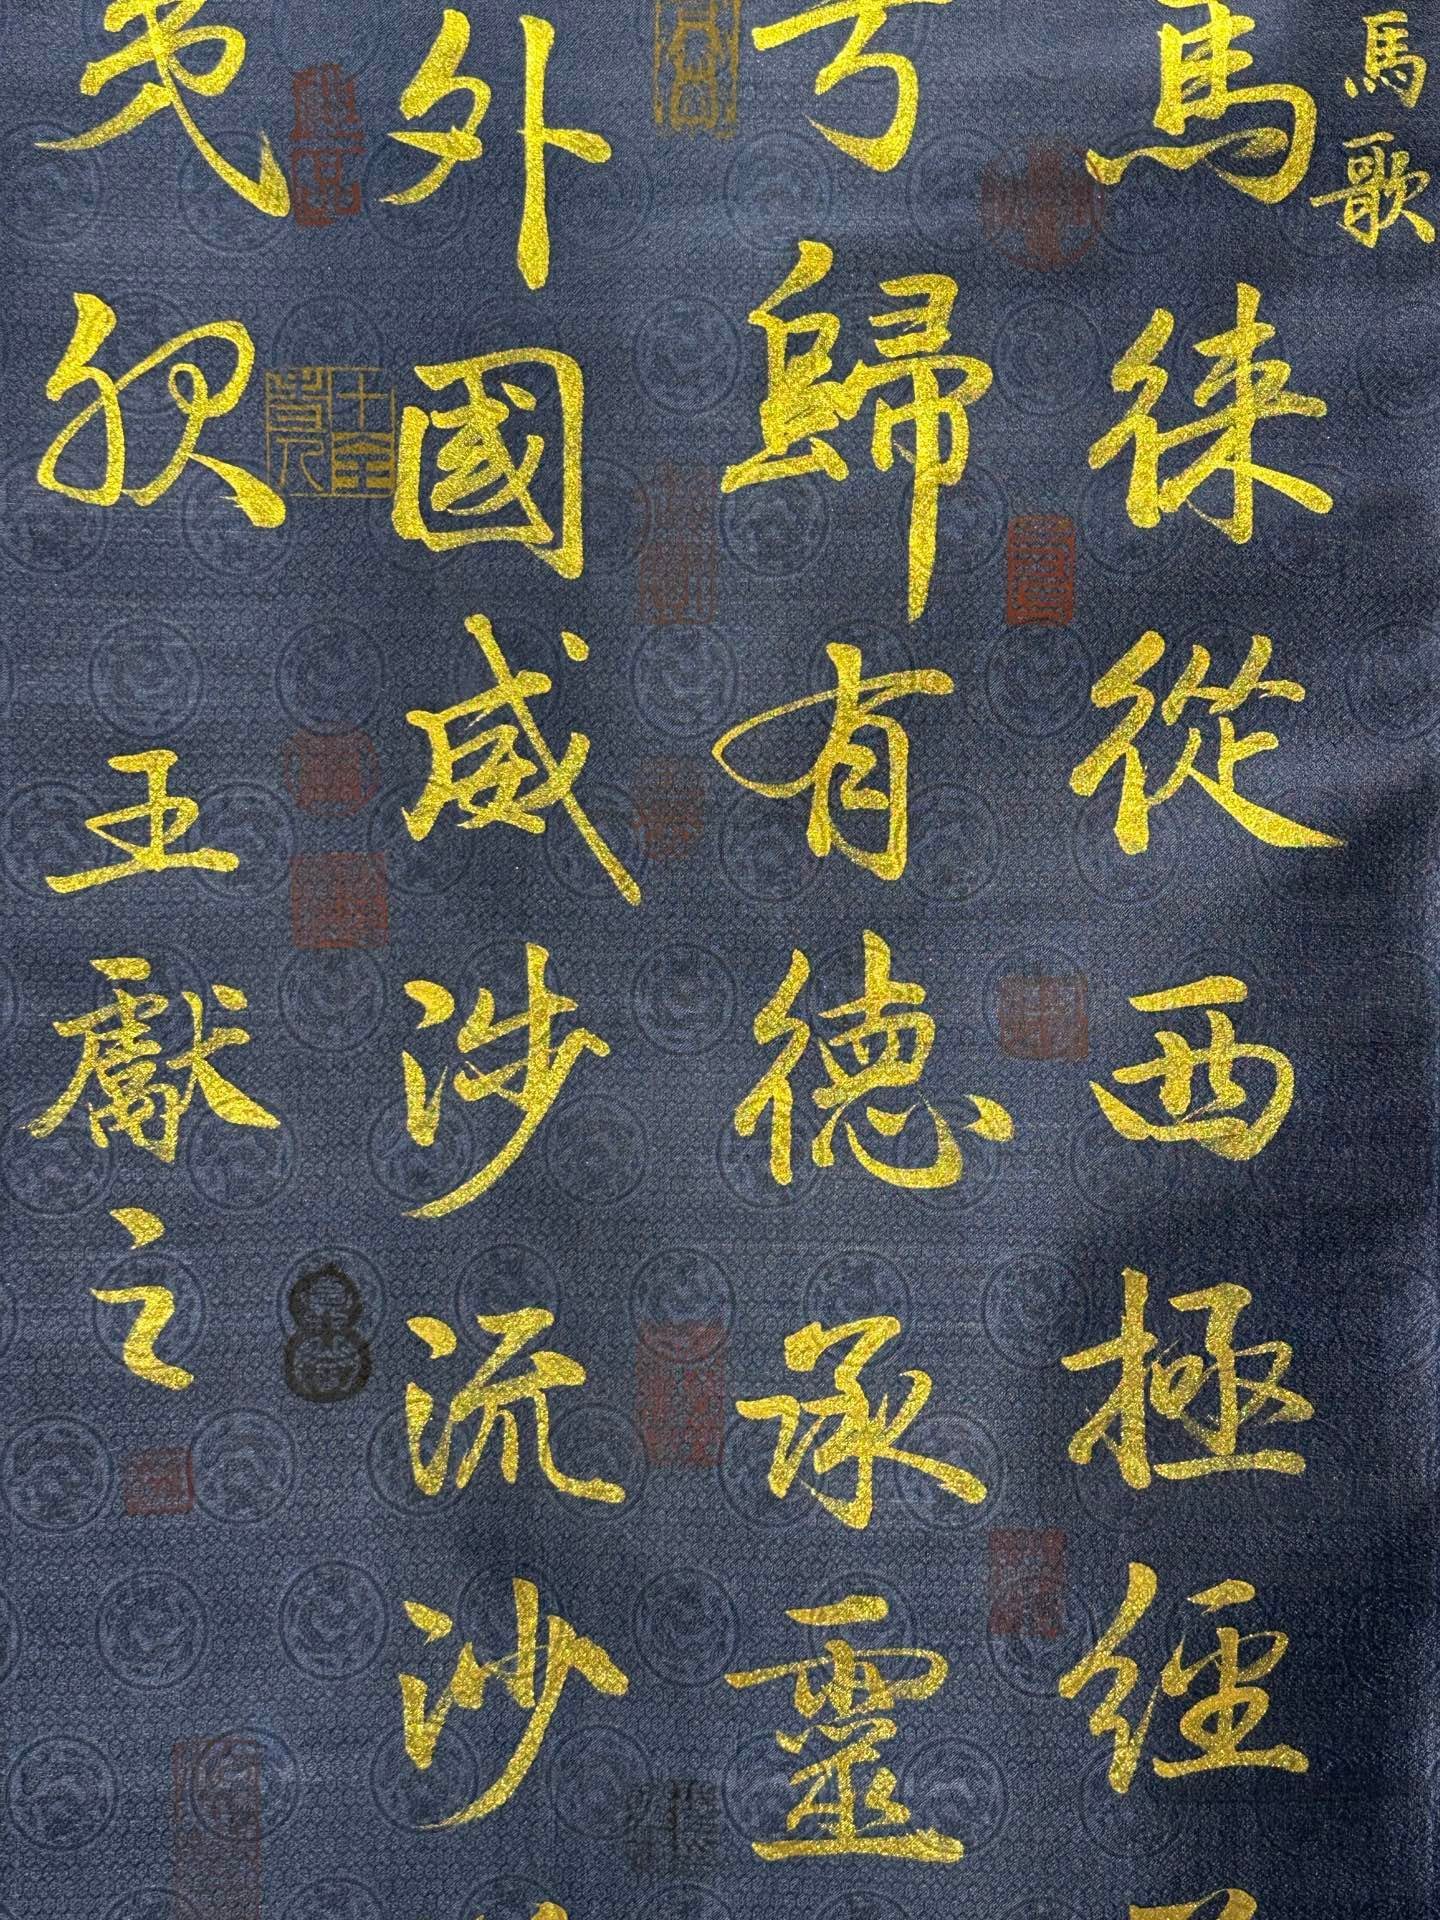 馬歌
馬徠從西極經
兮歸有德承靈
外國威涉流沙
夷服
王獻之